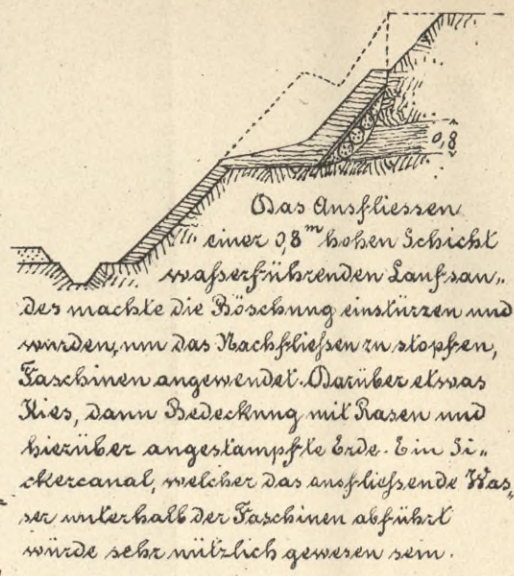 0,8
Das Ausfliessen
einer 0,8 m hohen Schicht
wasserführenden Laufsan„
des machte die Böschung einstürzen und
wurden, um das Nachfließen zu stopfen,
Faschinen angewendet. Darüber etwas
Kies, dann Bedeckung mit Rasen und
hierüber angestampfte Erde. Ein Si„
ckercanal, welcher das ausfließende Was„
ser unterhalb der Faschinen abführt
würde sehr nützlich gewesen sein.